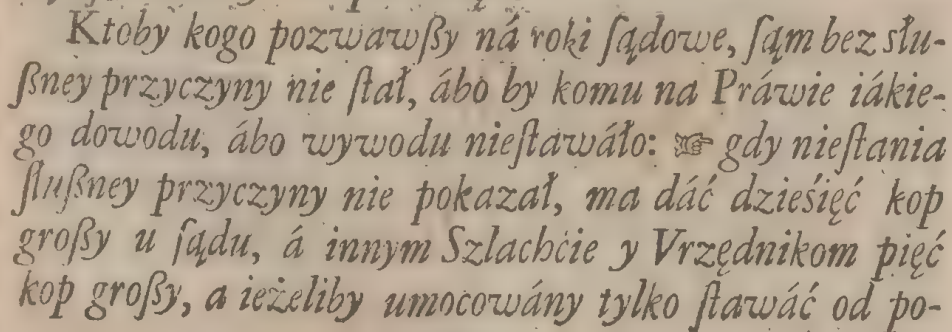 Ktoby kogo pozwawſßy ná roki ſądowe, ſąm bez słu-
ſßney przyczyny nie ſtał, ábo by komu na Práwie iákie-
go dowodu, ábo wywodu nieſtawáło: ☞ gdy nieſtania
ſluſßney przyczyny nie pokazał, ma dáć dzieśięć kop
groſßy u ſądu, á innym Szlachćie y Vrzędnikom pięć
kop groſßy, a ieżeliby umocowány tylko ſtawáć od po-